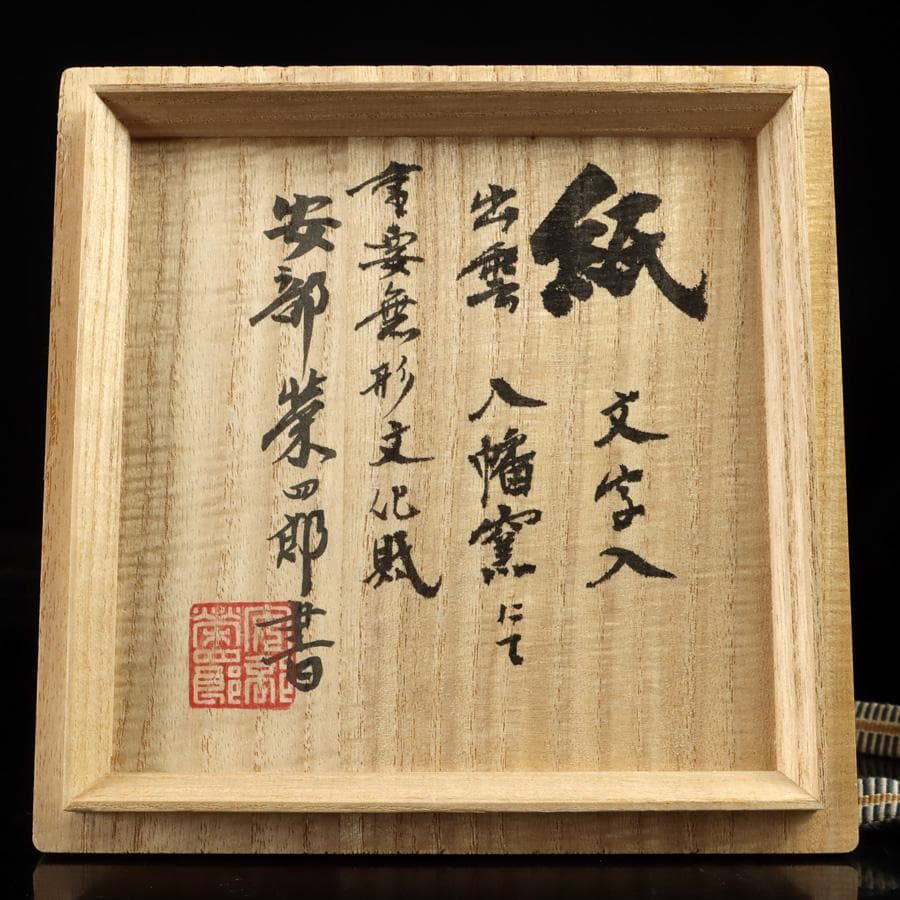 紙 文字入
出雲 八幡窯にて
重要無形文化財
安部榮四郎書
安部榮四郎